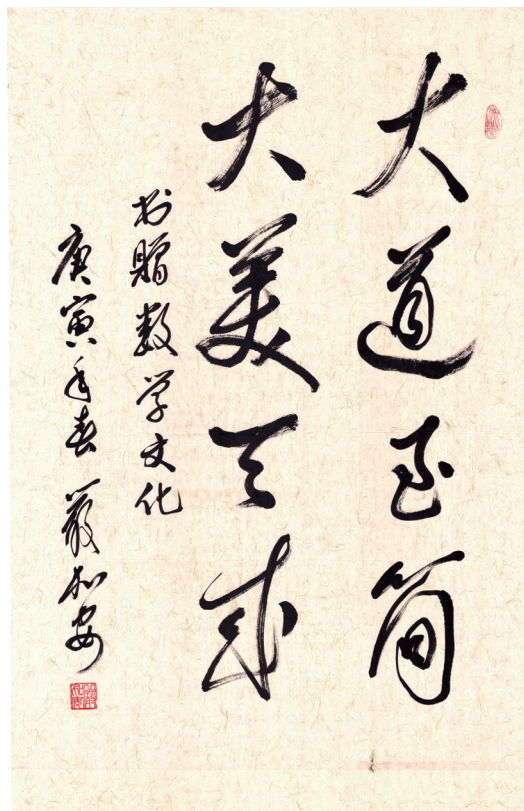 大道至简
大美天成
书赠数学文化
庚寅年春 严加安